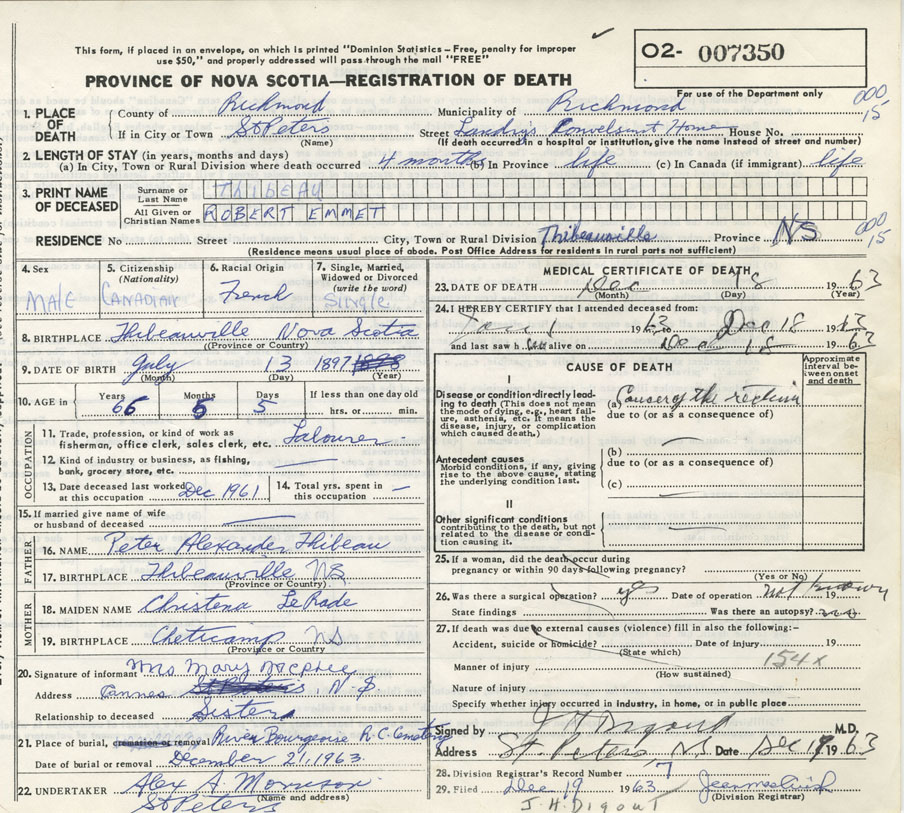 This form, if placed in an envelope, on which is printed "Dominion Statistics–Free, penalty for improper
use $50," and properly addressed will pass through the mail "FREE"
PROVINCE OF NOVA SCOTIA—REGISTRATION OF DEATH
O2- 007350
For use of the Department only
000
15
1. PLACE OF DEATH
County of Richmond Municipality of Richmond
If in City or Town St Peters Street Landry's Convelsent Home House No.
(Name) (If death occurred in a hospital or institution, give the name instead of street and number)
2. LENGTH OF STAY (in years, months and days)
(a) In City, Town or Rural Division where death occurred 4 months (b) In Province life (c) In Canada (if immigrant) life
3. PRINT NAME OF DECEASED
Surname or Last Name THIBEAU
All Given or Christian Names ROBERT EMMET
000
15
RESIDENCE No Street City, Town or Rural Division Thibeauville Province NS
(Residence means usual place of abode. Post Office Address for residents in rural parts not sufficient)
4. Sex MALE
5. Citizenship (Nationality) CANADIAN
6. Racial Origin French
7. Single, Married, Widowed or Divorced (write the word) Single
8. BIRTHPLACE Thibeauville Nova Scotia
(Province or Country)
9. DATE OF BIRTH July 13 1897
(Month) (Day) (Year)
10. AGE in Years 66 Months 5 Days 5 If less than one day old
hrs. or min.
OCCUPATION
11. Trade, profession, or kind of work as
fisherman, office clerk, sales clerk, etc. Labourer
12. Kind of industry or business, as fishing,
bank, grocery store, etc.
13. Date deceased last worked at this occupation Dec 1961
14. Total yrs. spent in this occupation –
15. If married give name of wife
or husband of deceased
FATHER
16. NAME Peter Alexander Thibeau
17. BIRTHPLACE Thibeauville NS
(Province or Country)
MOTHER
18. MAIDEN NAME Christena
19. BIRTHPLACE Cheticamp NS
(Province or Country)
20. Signature of informant Mrs Mary
Address St Peters, N.S
Relationship to deceased Sister
21. Place of burial, cremation or removal River Bourgeoise R.C. Cemetery
Date of burial or removal December 21, 1963
22. UNDERTAKER Alex A. Morrison
St Peters (Name and address)
MEDICAL CERTIFICATE OF DEATH
23. DATE OF DEATH Dec 18 1963
(Month) (Day) (Year)
24. I HEREBY CERTIFY that I attended deceased from:
Jan 1 1963 Dec 18 1963
and last saw h im alive on Dec 18 1963
CAUSE OF DEATH
Approximate Interval between onset and death
I
Disease or condition directly leading to death (This does not mean the mode of dying, e.g., heart failure, asthenia, etc. It means the disease, injury, or complication which caused death.)
(a) Cancer of the rectum
due to (or as a consequence of)
Antecedent causes
Morbid conditions, if any, giving rise to the above cause, stating the underlying condition last.
(b)
due to (or as a consequence of)
(c)
II
Other significant conditions
contributing to the death, but not related to the disease or condition causing it.
25. If a woman, did the death occur during
pregnancy or within 90 days following pregnancy?
(Yes or No)
26. Was there a surgical operation? yes Date of operation not known 19
State findings Was there an autopsy? no
27. If death was due to external causes (violence) fill in also the following:–
Accident, suicide or homicide? Date of injury 19
(State which)
154X
Manner of injury
(How sustained)
Nature of injury
Specify whether injury occurred in industry, in home, or in public place
Signed by J H Digout M.D.
Address St. Peters NS Date Dec 19 1963
28. Division Registrar's Record Number 7
29. Filed Dec 19 1963
(Division Registrar)
J. H. DIGOUT